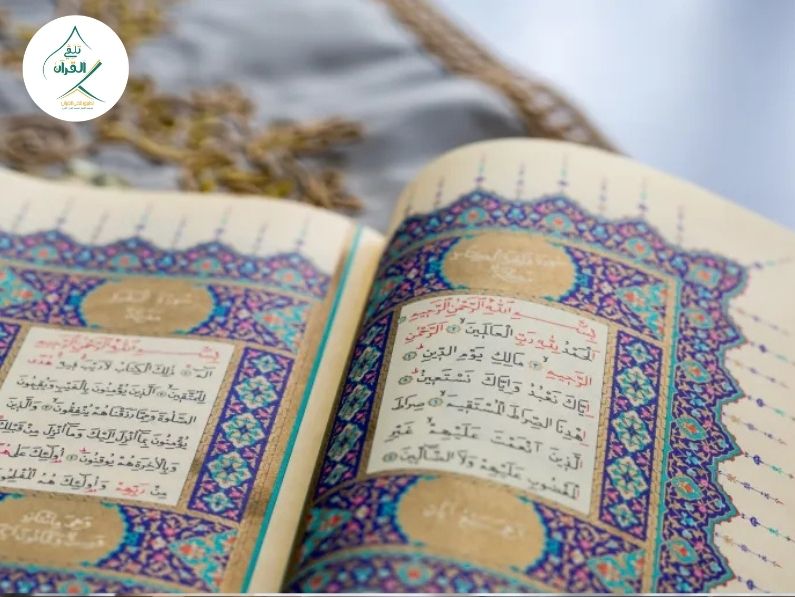 تلقي
القرآن
سورة فاتحة الكتاب
بِسْمِ اللَّهِ الرَّحْمَٰنِ الرَّحِيمِ
اَلْحَمْدُ لِلّٰهِ رَبِّ الْعَالَمِينَ ﴿١﴾ اَلرَّحْمٰنِ
الرَّحِيمِ ﴿٢﴾ مَالِكِ يَوْمِ الدِّينِ ﴿٣﴾
اِيَّاكَ نَعْبُدُ وَاِيَّاكَ نَسْتَعِينُ ﴿٤﴾
اِهْدِنَا الصِّرَاطَ الْمُسْتَقِيمَ ﴿٥﴾ صِرَاطَ
الَّذِينَ اَنْعَمْتَ عَلَيْهِمْ غَيْرِ
الْمَغْضُوبِ عَلَيْهِمْ وَلَا الضَّالِّينَ
سورة البقرة
بِسْمِ اللَّهِ الرَّحْمَٰنِ الرَّحِيمِ
الٓمٓ ذٰلِكَ الْكِتَابُ لَا رَيْبَ فِيهِ هُدًى
لِلْمُتَّقِينَ اَلَّذِينَ يُؤْمِنُونَ بِالْغَيْبِ وَيُقِيمُونَ
الصَّلٰوةَ وَمِمَّا رَزَقْنَاهُمْ يُنْفِقُونَ وَالَّذِينَ
يُؤْمِنُونَ بِمَا اُنْزِلَ اِلَيْكَ وَمَا اُنْزِلَ مِنْ قَبْلِكَ
وَبِالْاٰخِرَةِ هُمْ يُوقِنُونَ اُولٰئِكَ عَلٰى هُدًى
مِنْ رَبِّهِمْ وَاُولٰئِكَ هُمُ الْمُفْلِحُونَ